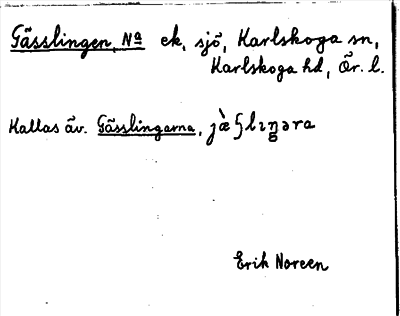 Gässlingen, Na ek, sjö, Karlskoga sn,
Karlskoga hd, Ör. l.
Kallas äv. Gässlingarna,
Erik Noreen